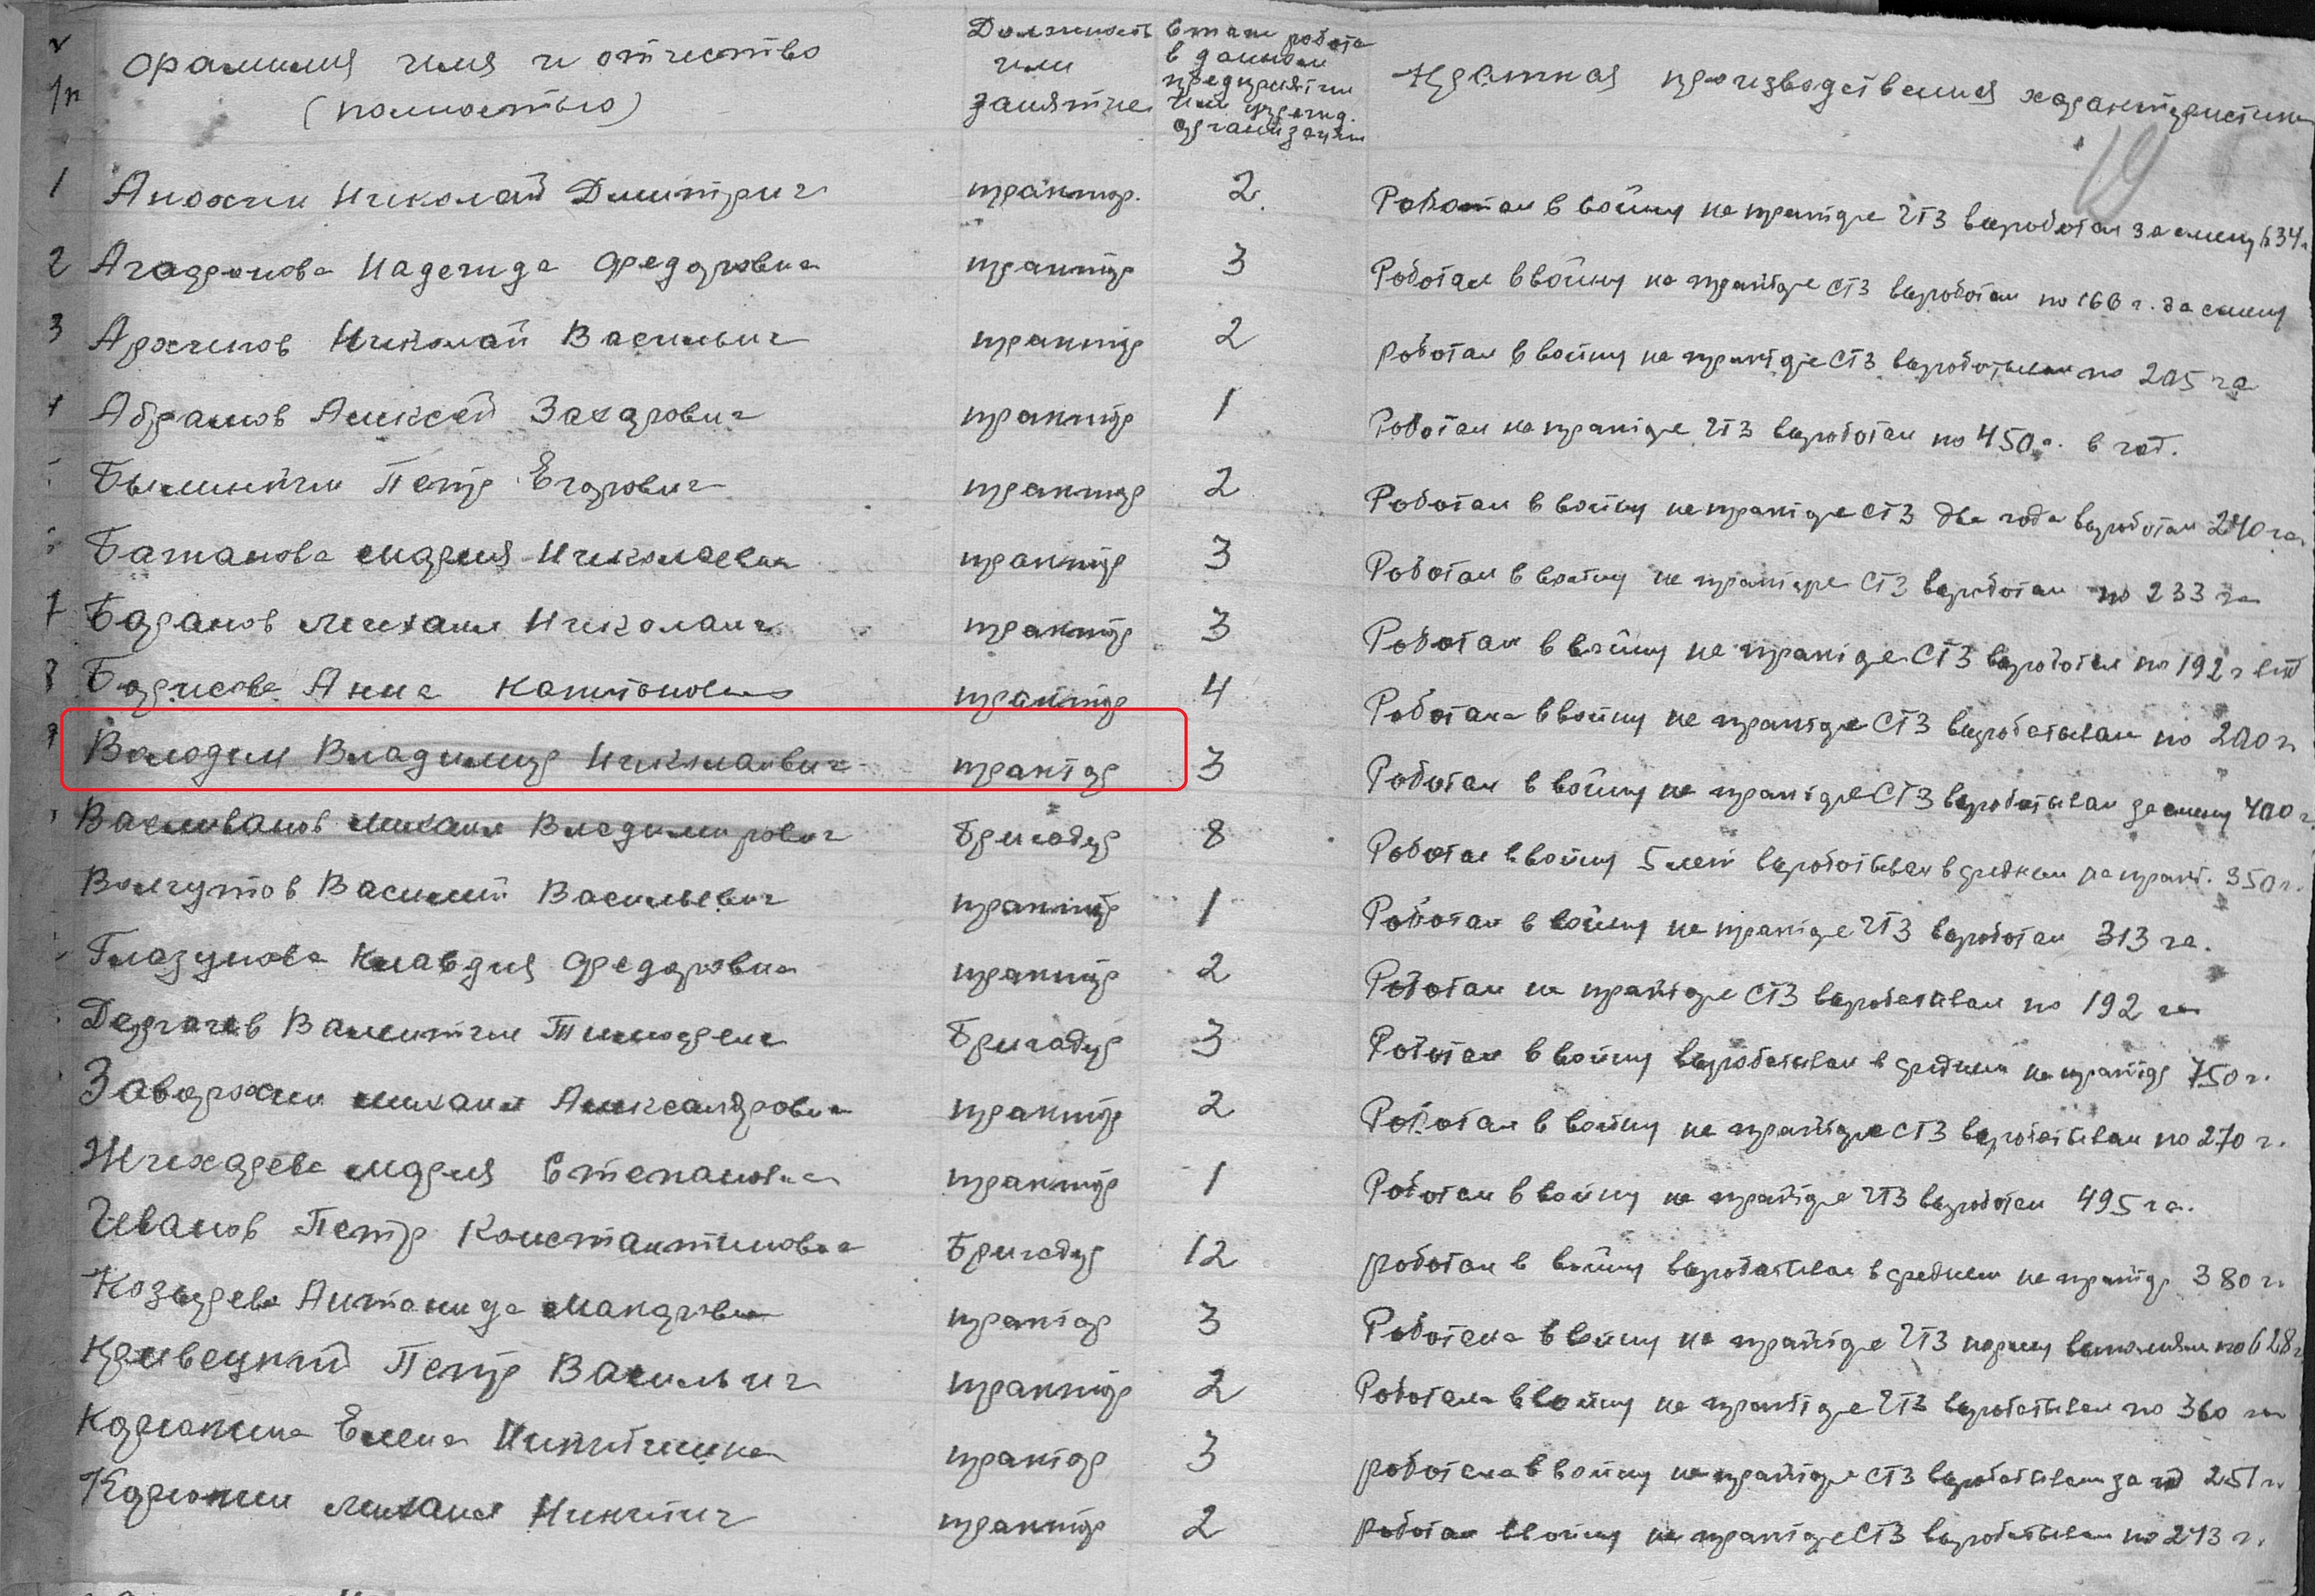 Фамилия имя и отчество (полностью) Должность или занятие Стаж работы в данном предприятии или учрежд. организации Краткая производственная характеристика
19
1 Анохин Николай Дмитрич трактор. 2. Работал в войну на тракторе ЧТЗ выработал за смену 634 г
2 Агафонова Надежда Федоровна трактор 3 Работал в войну на тракторе СТЗ выработал по 166 г. за смену
3 Архипов Николай Василвич трактор 2 работал в войну на тракторе СТЗ вырабатывал по 205 га
4 Абрамов Алексей Захарович трактор 1 Работал на тракторе ЧТЗ выработал по 450 г. в год.
Петр Егорович трактор 2 Работал в войну на тракторе СТЗ два года выработал 240 га.
Батанова Мария Николаевна трактор 3 Работал в войну на тракторе СТЗ выработал по 233 га
7 Баранов Михаил Николаич трактор 3 Работал в войну на тракторе СТЗ выработал по 192 г
8 Борисова Анна Капитоновна трактор 4 Работала в войну на тракторе СТЗ вырабатывал по 200 г.
9 Володин Владимир Николаевич трактор 3 Работал в войну на тракторе СТЗ вырабатывал за смену 400 г.
Михаил Владимирович Бригадир 8 Работал в войну 5 лет вырабатывал в среднем на тракт. 350 г.
Волгутов Василий Васильевич трактор 1 Работал в войну на тракторе ЧТЗ выработал 313 га.
Глазунова Клавдия Федоровна трактор 2 Работал на тракторе СТЗ вырабатывал по 192 га
Дергачев Валентин Тимофеич Бригадир 3 Работал в войну вырабатывал в среднем на трактор 750 г.
Заворохин Михаил Александрович трактор 2 Работал в войну на тракторе СТЗ вырабатывал по 270 г.
Жихарева Мария Степановна трактор 1 Работал в войну на тракторе ЧТЗ выработал 495 га.
Иванов Петр Константинович Бригадир 12 работал в войну вырабатывал в среднем на трактор 380 г.
Козырева Антонида Макаровна трактор 3 Работала в войну на тракторе ЧТЗ норму выполняла по 628 г
Кривецкий Петр Василвич трактор 2 Работала в войну на тракторе ЧТЗ вырабатывал по 360 га
Корюкина Елена Никитична трактор 3 работала в войну на тракторе СТЗ вырабатывал за год 251 г.
Корюкин Михаил Никитич трактор 2 работал в войну на тракторе СТЗ вырабатывал по 273 г.